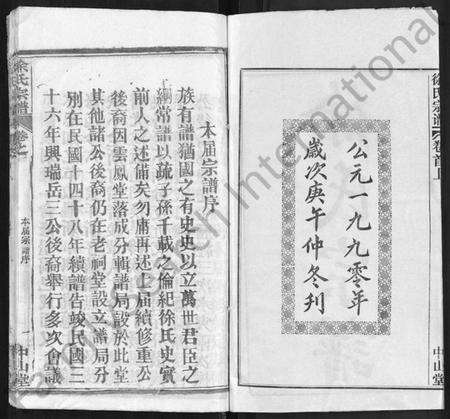 徐氏宗譜
卷首上
中山堂
公元一九九零年
歲次庚午仲冬刋
本屆宗譜序
族有譜猶國之有史史以立萬世君臣之
綱常譜以疏子孫千載之倫紀徐氏史實
前人之述備矣勿庸再述上屆續修重公
後裔因雲鳳堂落成分輯譜局設於此堂
其他諸公後裔仍在老祠堂設立譜局分
別在民國十四四十八年續譜告竣民國三
十六年興瑞岳三公後裔舉行多次會議
徐氏宗譜
卷之
本屆宗譜序
中山堂
International